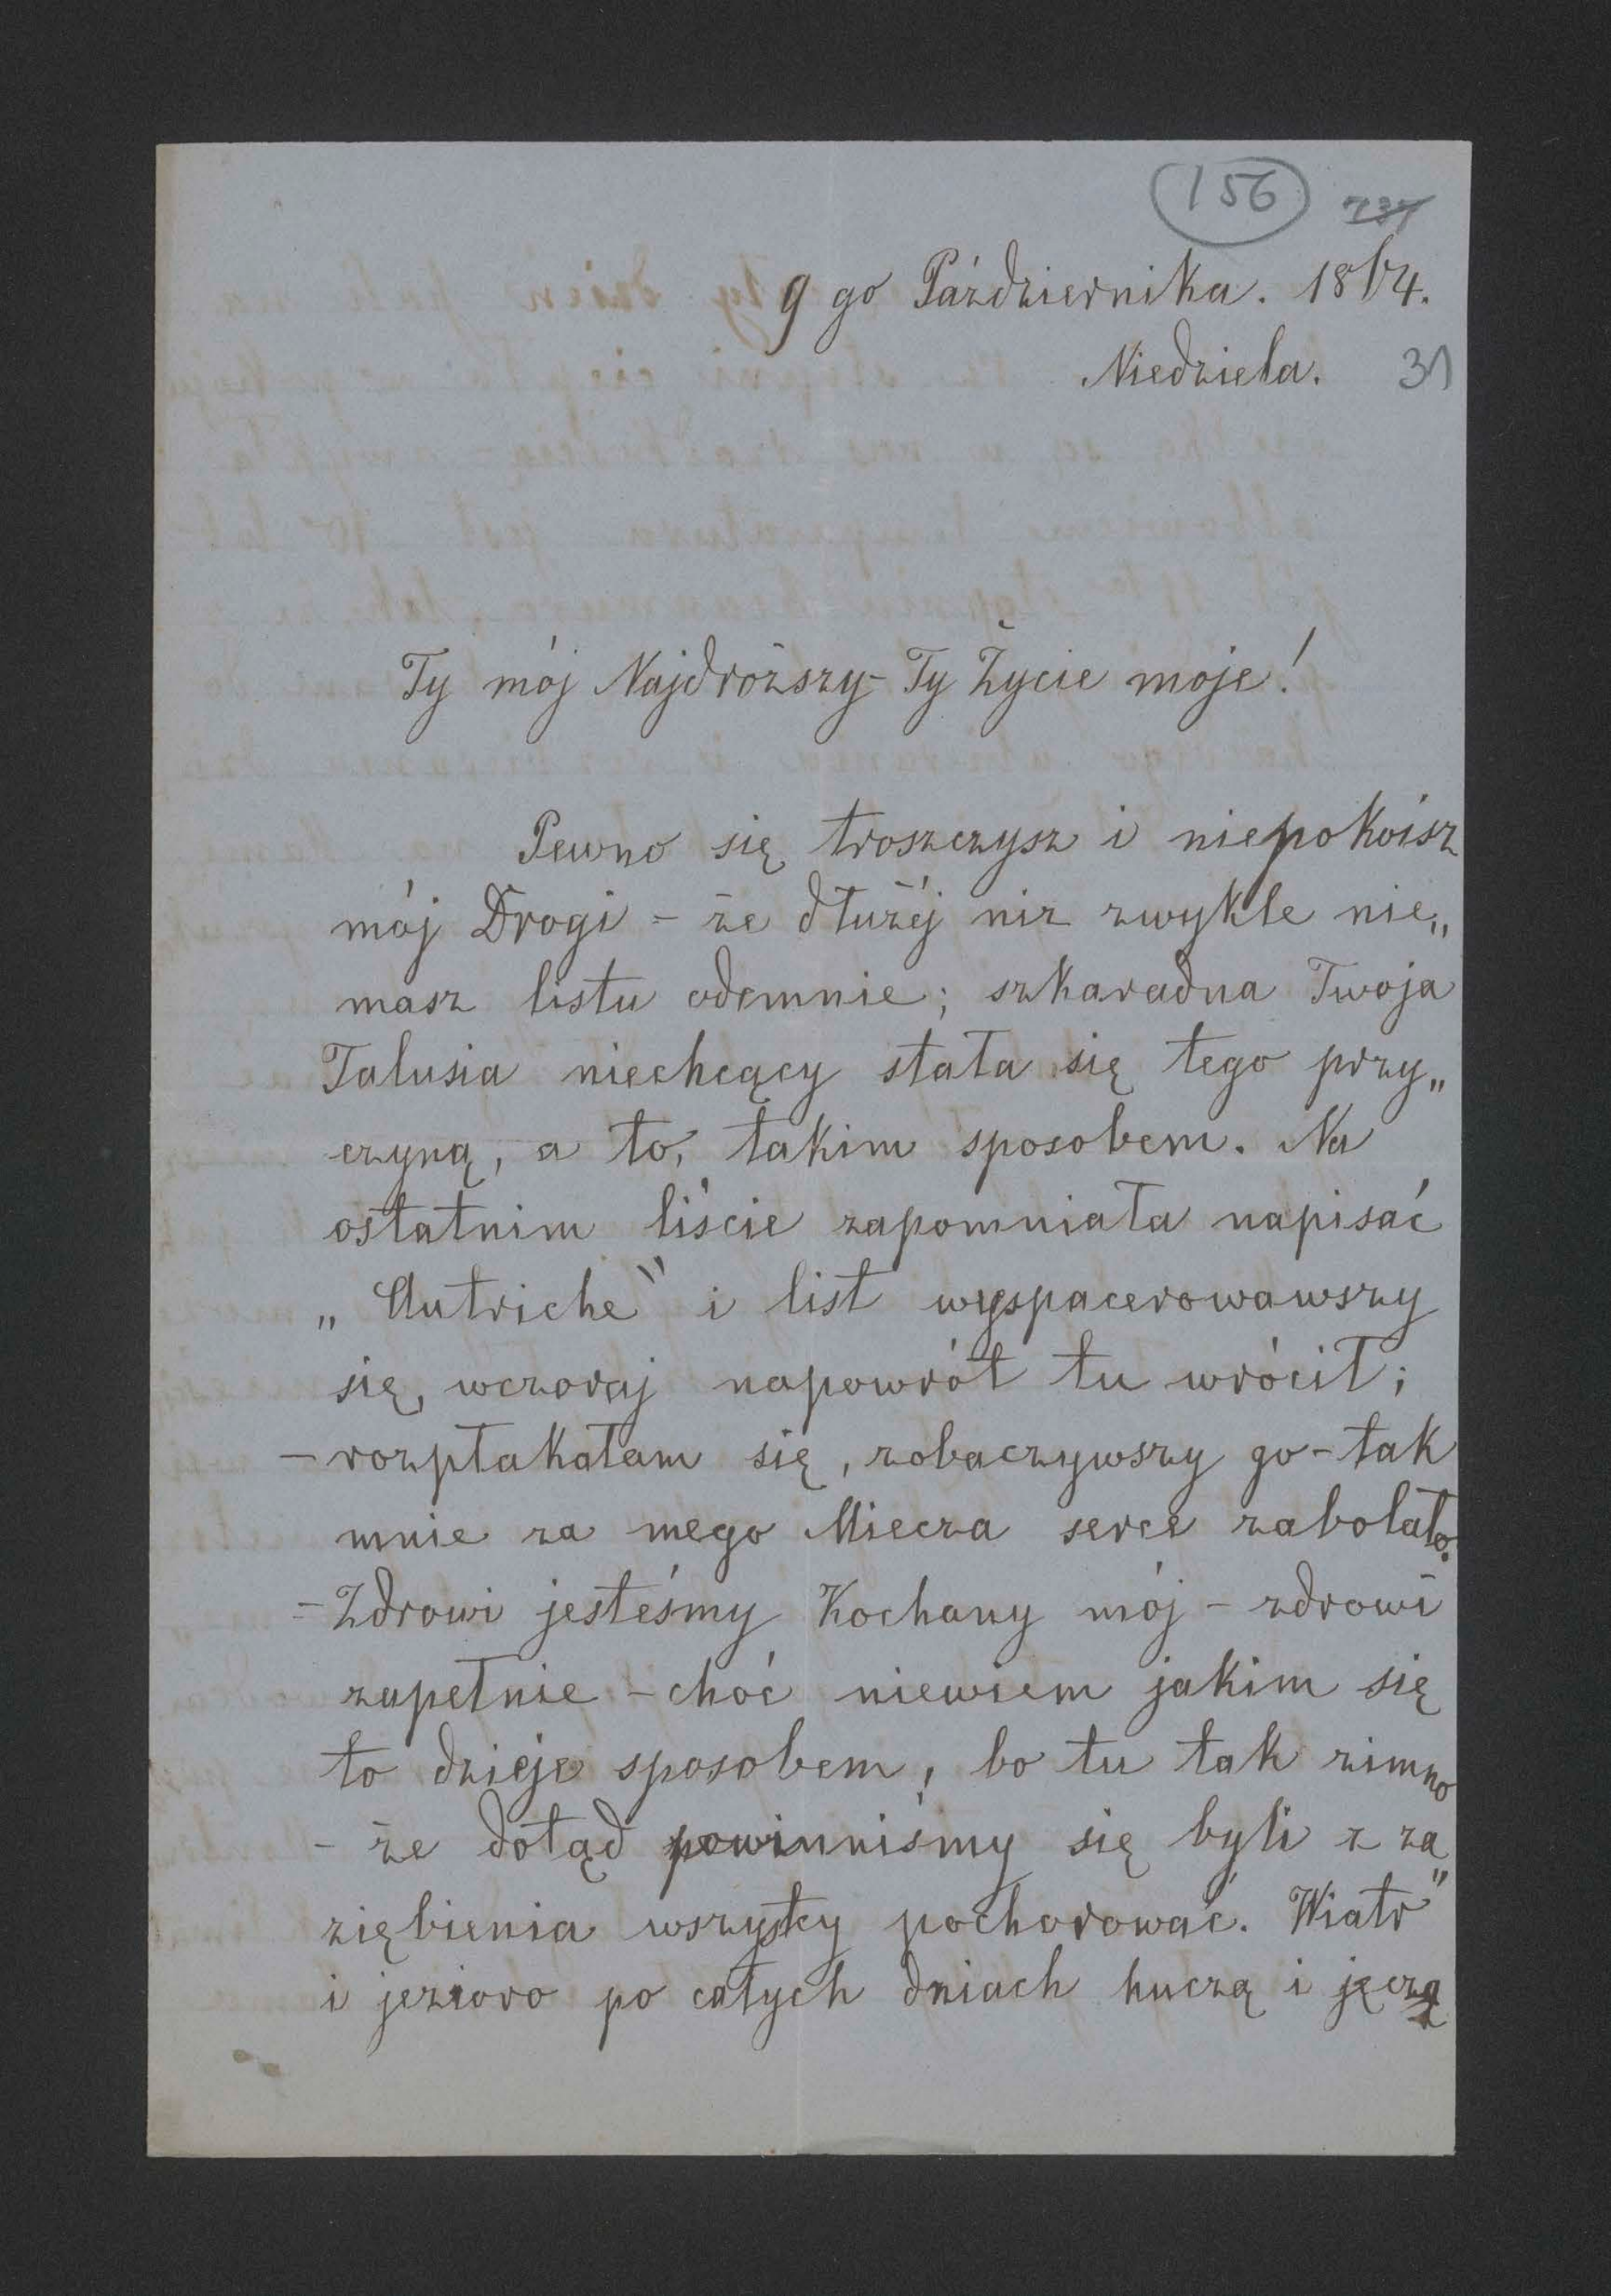 156 737
9 go Października. 1864.
Niedziela. 31
Ty mój Najdroższy - Ty Życie moje!
Pewno się troszczysz i niepokoisz
mój Drogi - że dłużéj niż zwykle nie„
masz listu odemnie; szkaradna Twoja
Talusia niechcący stała się tego przy„
czyną, a to, takim sposobem. Na
ostatnim liście zapomniała napisać
„Autriche" i list wyspacerowawszy
się, wczoraj napowrót tu wrócił;
- rozpłakałam się, zobaczywszy go - tak
mnie za mego Miecza serce zabolało.
- Zdrowi jesteśmy Kochany mój - zdrowi
zupełnie - choć niewiem jakim się
to dzieje sposobem, bo tu tak zimno
- że dotąd powinniśmy się byli z za„
ziębienia wszyscy pochorować. Wiatr
i jezioro po całych dniach huczą i jęczą